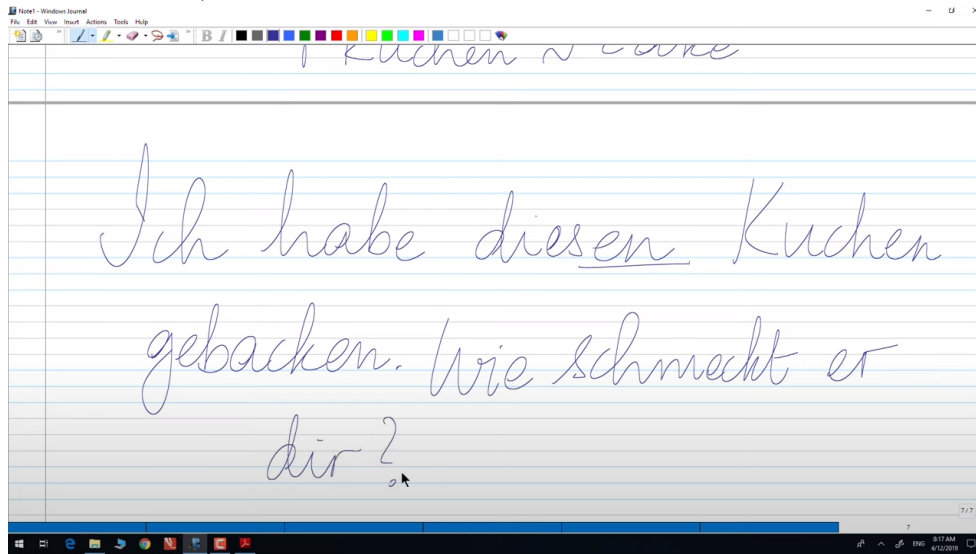 Note1 - Windows Journal
File Edit View Insert Actions Tools Help
B I
Kuchen
Ich habe diesen Kuchen
gebacken. Wie schmeckt er
dir?
7/7
7
ENG 8:17 AM
4/12/2019